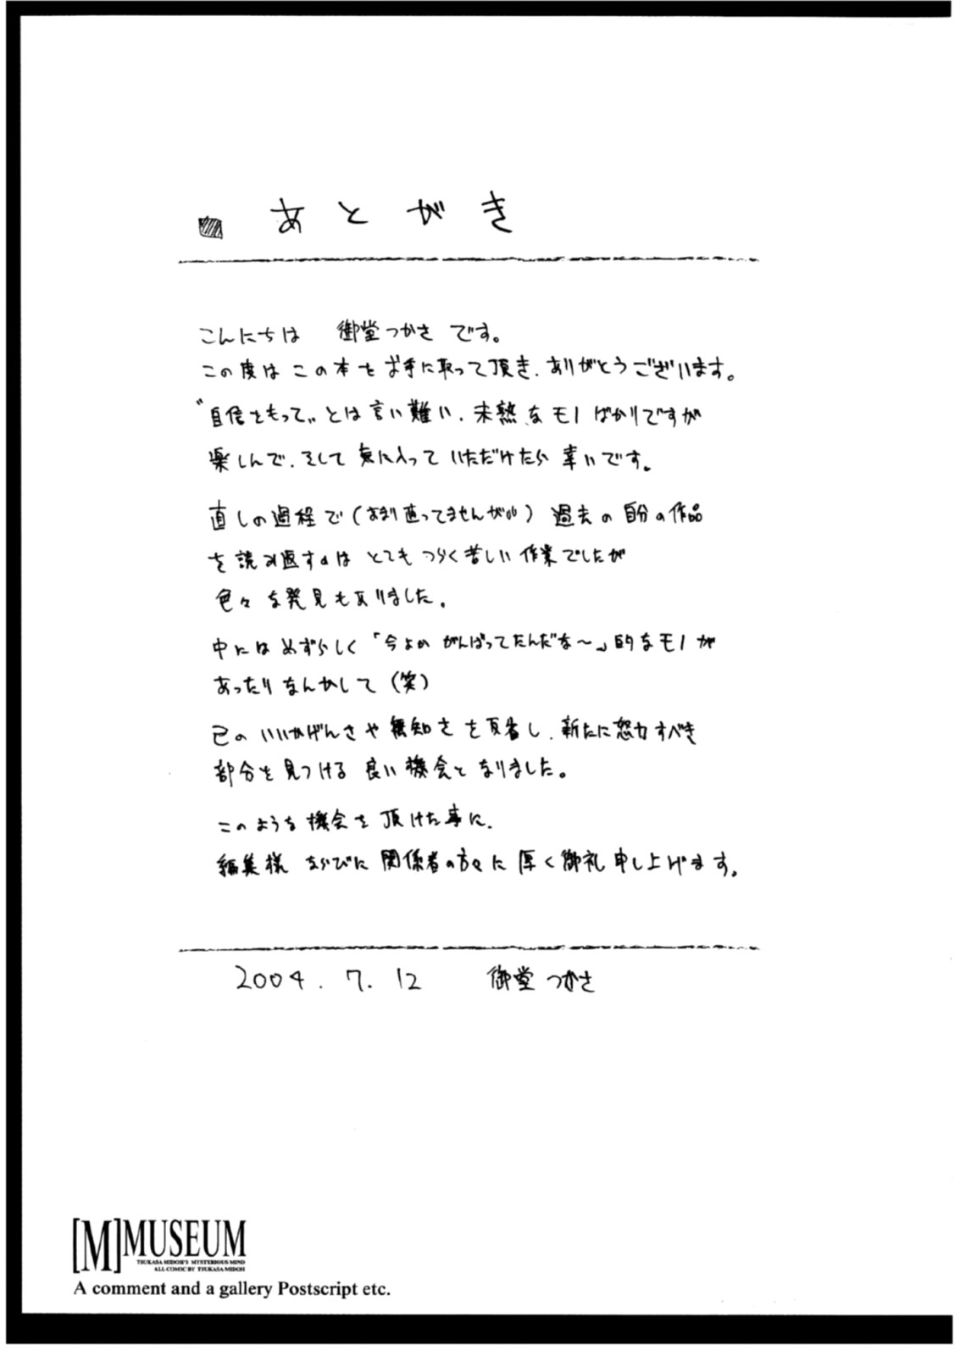 あとがき
こんにちは 御堂つかさ です。
この度は この本を お手に取って頂き、ありがとうございます。
〝自信をもって〟とは言い難い、未熟なモノばかりですが
楽しんで、そして 気に入って いただけたら 幸いです。
直しの過程で（あまり直ってませんが） 過去の自分の作品
を読み返すのは とても つらく苦しい 作業でしたが
色々な発見もありました。
中にはめずらしく「今よか がんばってたんだな〜」的なモノが
あったりなんかして（笑）
己の いいかげんさや 無知さ を反省し、新たに努力すべき
部分を見つける 良い機会と なりました。
このような機会を頂けた事に、
編集様 ならびに 関係者の方々に 厚く御礼申し上げます。
2004. 7. 12 御堂つかさ
[M]MUSEUM
TSUKASA MIDOH'S MYSTERIOUS MIND
ALL COMIC BY TSUKASA MIDOH
A comment and a gallery Postscript etc.